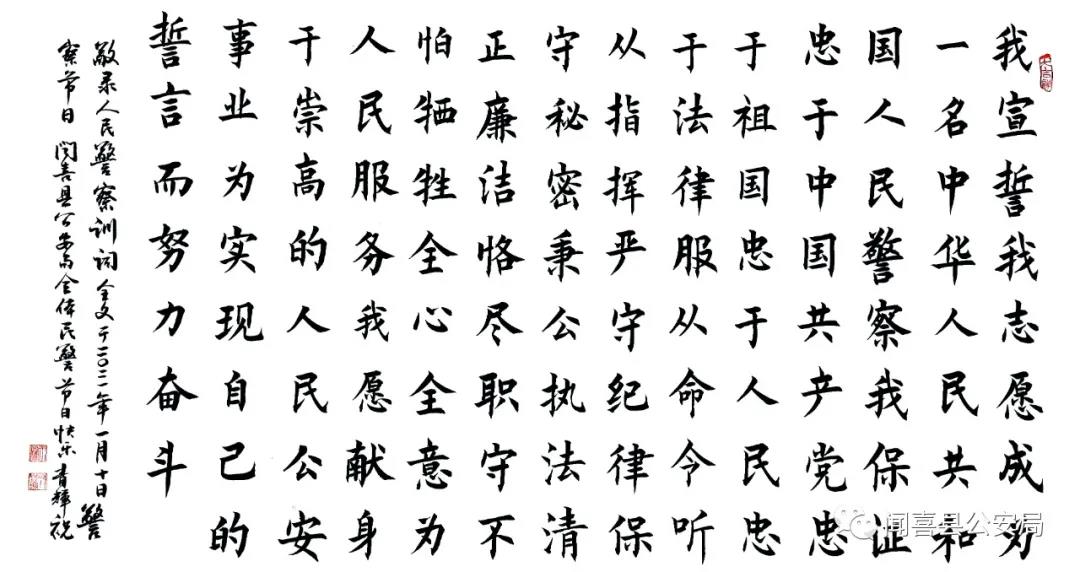 我宣誓我志愿成为
一名中华人民共和
国人民警察我保证
忠于中国共产党忠
于祖国忠于人民忠
于法律服从命令听
从指挥严守纪律保
守秘密秉公执法清
正廉洁恪尽职守不
怕牺牲全心全意为
人民服务我愿献身
于崇高的人民公安
事业为实现自己的
誓言而努力奋斗
敬录人民警察训词全文于二〇二一年一月十日警
察节日 闻喜县公安局全体民警节日快乐 青辉祝
闻喜县公安局